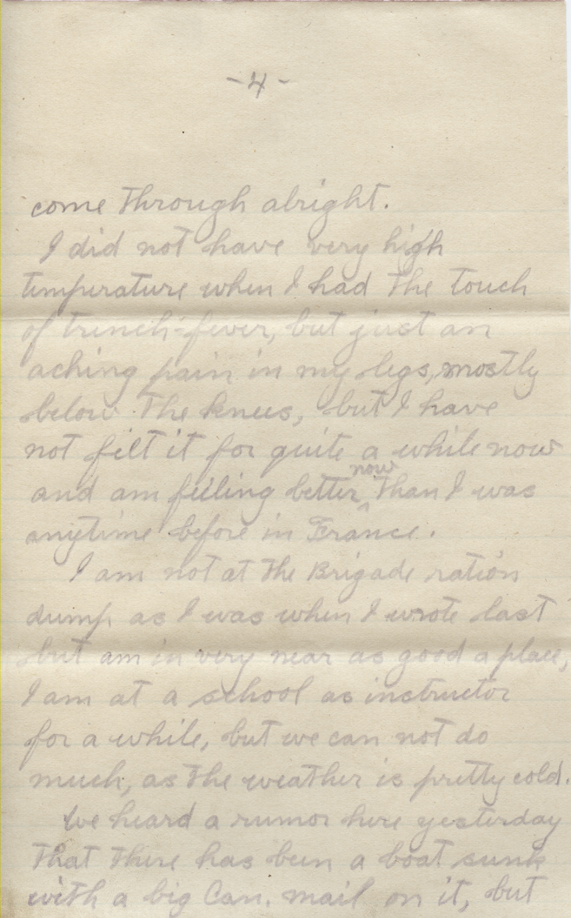 -4-
come through alright.
I did not have very high
temperature when I had the touch
of trench-fever, but just an
aching pain in my legs, mostly
below the knees, but I have
not felt it for quite a while now
now
and am feeling better ^ than I was
anytime before in France.
I am not at the Brigade ration
dump as I was when I wrote last
but am in very near as good a place,
I am at a school as instructor
for a while, but we can not do
much, as the weather is pretty cold.
We heard a rumor here yesterday
that there has been a boat sunk
with a big Can. mail on it, but